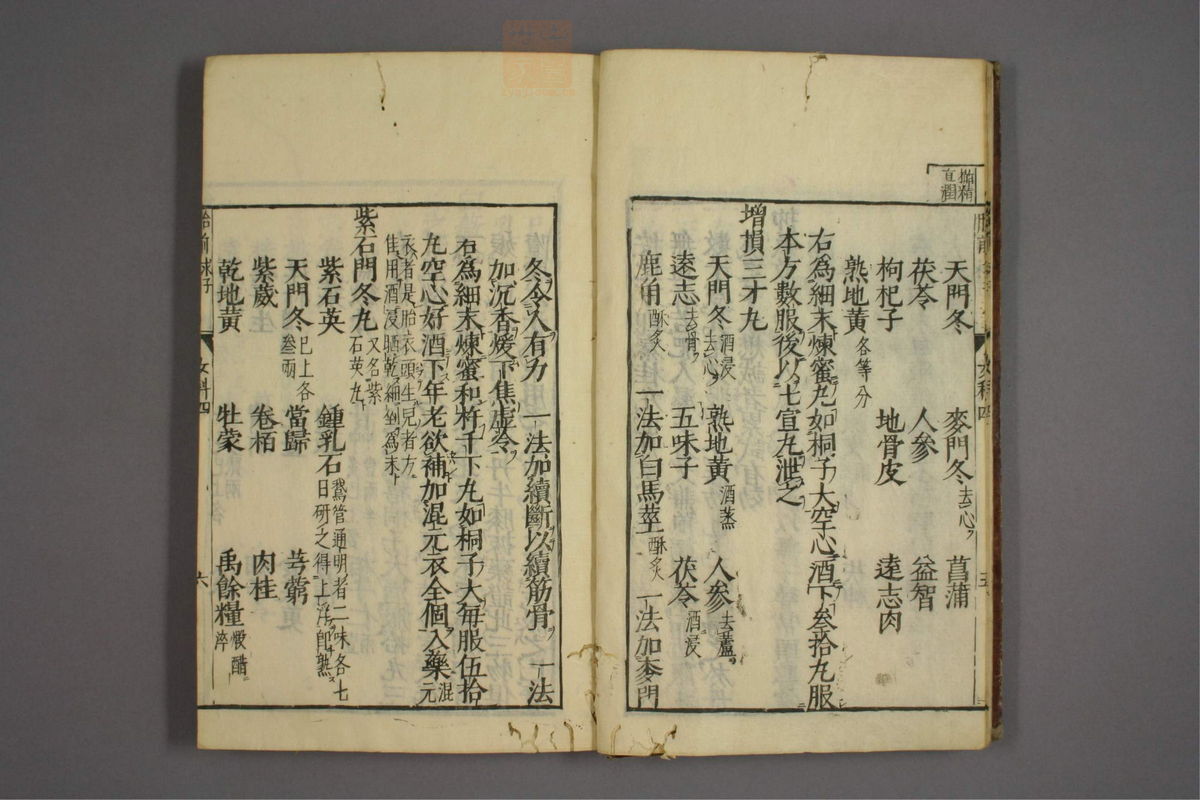 天門冬 麥門冬去心 菖蒲
茯苓 人參 益智
枸杞子 地骨皮 遠志肉
熟地黃各等分
右爲細末煉蜜丸如桐子大空心酒下叁拾丸服
本方數服後以七宣丸泄之
增損三才丸
天門冬酒浸去心 熟地黃酒蒸 人參去蘆
遠志去骨 五味子 茯苓酒浸
鹿角酥炙 一法加白馬莖酥炙 一法加麥門
冬令人有力 一法加續斷以續筋骨 一法
加沉香煖下焦虛冷
右爲細末煉蜜和杵千下丸如桐子大每服伍拾
丸空心好酒下年老欲補加混元衣全個入藥混元
衣者是胎衣頭生兒者方
佳用酒浸晒乾細剉爲末
紫石門冬丸又名紫石英丸
紫石英 鍾乳石鵞管通明者二味各七日研之得上浮即熟
天門冬已上各叁兩 當歸 芎藭
紫葳 卷栢 肉桂
乾地黃 牡蒙 禹餘糧煅醋淬
女科四
六